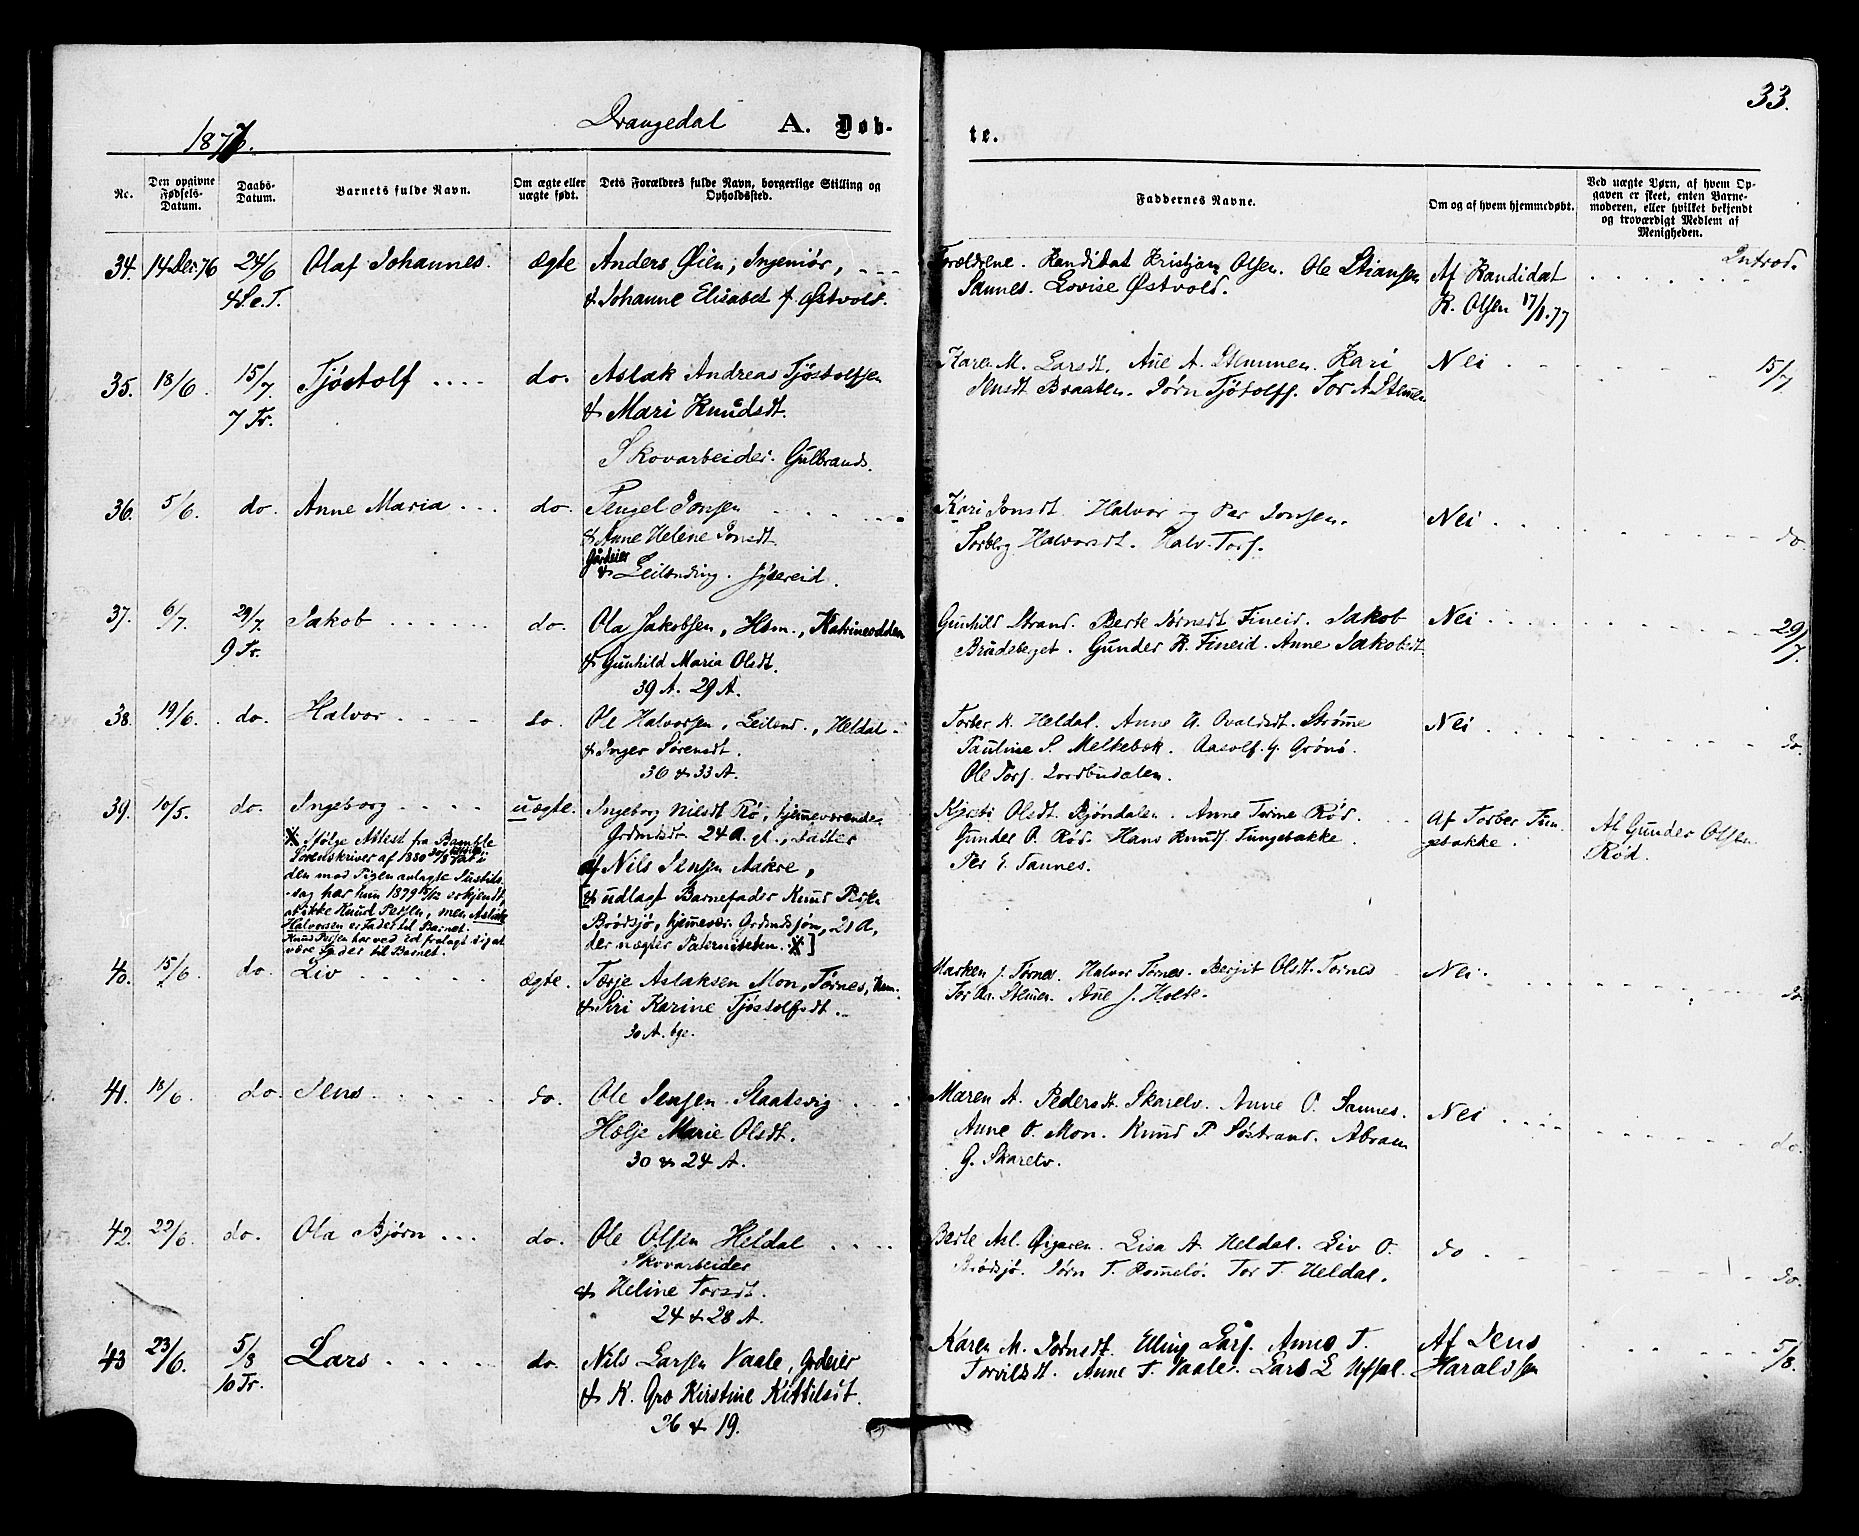 33.
1877.
Drangedal A. Døb-
te.
No.
Den opgivne Fødsels-Datum.
Daabs-Datum.
Barnets fulde Navn.
Om ægte eller uægte født.
Dets Forældres fulde Navn, borgerlige Stilling og Opholdssted.
Faddernes Navne.
Om og af hvem hjemmedøbt.
Ved uægte Børn, af hvem Opgaven er skeet, enten Barnemoderen, eller hvilket bekjendt og troværdigt Medlem af Menigheden.
Introd.
34. 14 Dec. 76 24/6 Olaf Johannes. ægte Anders Øien, Ingeniør,
4 S. e. T. & Johanne Elisabet f. Østvold.
Forældrene. Kandidat Kristjan Olsen. Ole Stiansen Af Kandidat
Sannes. Lovise Østvold. K. Olsen 17/1.77
35. 18/6. 15/7. Tjøstolf do. Aslak Andreas Tjøstolfsen
7 Tr. & Mari Knudsdt.
Skovarbeider. Gulbrands.
Karen M. Larsdt. Ane A. Stemmen. Kari Nei 15/7.
Braaten. Jørn Tjøtolfs. Tor A Stemen
36. 5/6. do. Anne Maria do. Tengel Jonsen
& Anne Helene Jonsdt.
Gårdeier
& Leilending.
Kari Jonsdt. Halvor og Per Jonsen. Nei do.
Torbbg Halvorsdt. Halv. Tors.
37. 6/7. 29/7. Jakob do. Ola Jakobsen, Hsm., Katrineodden
9 Tr. & Gunhild Maria Olsdt.
39 A. 29 A.
Gunhild Strand. Berte Jørnsdt Fineid. Jakob Nei 29/7.
Gunder K. Fineid. Anne Jakobsdt.
38. 19/6. do. Halvor do. Ole Halvorsen, Leilend., Heldal
& Inger Sørensdt.
36 & 33 A.
Torber K. Heldal. Anne A. Strøme Nei do
Pauline S. Melkebek. Aasolf. G. Grønø.
Ole Tors.
39. 10/5. do. Ingeborg uægte. Ingeborg Nilsdt Rø, hjemmeværende
Grdmdsdtr. 24 A. gl., datter
af Nils Jensen Aakre,
[& udlagt Barnefader Knud Persen
Brødsjø, hjemmevær. Grdmdssøn, 21 A,
der nægter Paterniteten. X]
X: Ifølge Attest fra Bamble
Sorenskriver af 1880
den mod Pigen anlagte Justits
-sag har hun 1879 erkjendt,
at ikke Knud Persen, men Aslak
Halvorsen er Fader til Barnet.
Knud Persen har ved Ed fralagt sig at
være Fader til Barnet.
Kjersti Olsdt. Bjøndalen. Anne Rød. Af Torber Tun- Af Gunder Olsen
Gunder O. Rød. Hans Knuds. Tungebakke. gebakke. Rød.
Per E. Tannes.
40. 15/6. do. Liv ægte. Terje Aslaksen Mon, Tørnes, Hsm.
& Siri Karine Tjøstolfsdt.
30 A. bge.
Marken J. Tørnes. Halvor Tørnes. Berjit Olsdt. Tørnes Nei. do
Tor Aa. Stemen. Ane J. Holte.
41. 18/6. do. Jens do. Ole Jensen Slaatsvig
Helje Marie Olsdt.
30 & 24 A.
Maren A. Pedersdt. Skarelv. Anne O. Sannes. Nei do.
Anne O. Mon. Knud P. Søstrand. Abram
G. Skarelv.
42. 22/6. do. Ola Bjørn do. Ole Olsen Heldal
Skovarbeider
& Heline Torsdt.
24 & 28 A.
Berte Asl. Øigaren. Lisa A. Heldal. Liv O. do. do.
Brødsjø. Jørn T. Tor T. Heldal.
43 23/6. 5/8 Lars do. Nils Larsen Vaale, Grdeier
10 Tr. & K. Gro Kirstine Kittilsdt.
26 & 19.
Karen M. Jørnsdt. Elling Lars. Anne T. Af Jens 5/8.
Torvildsdt. Anne T. Vaale. Lars L Ufsal. Haraldsen